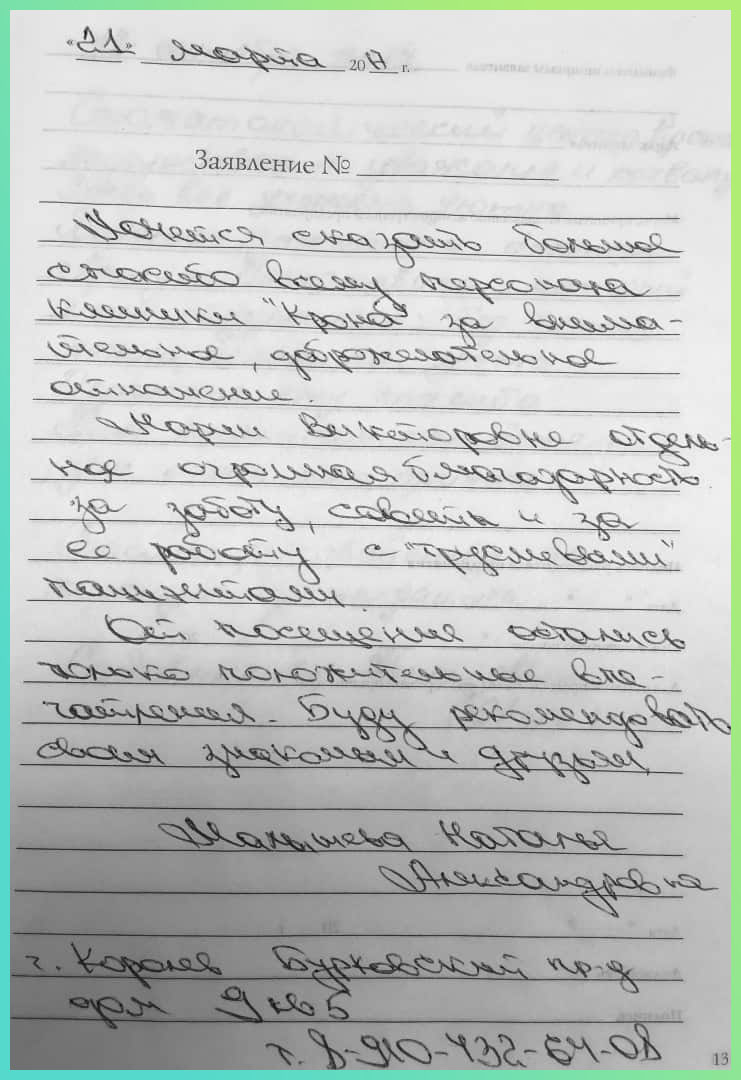 "21" марта 2017 г.
Заявление №
Хочется сказать большое
спасибо всему персоналу
клиники "Крона" за внима-
тельное, доброжелательное
отношение.
Марии Викторовне отдель-
ное огромная благодарность
за заботу, советы и за
ее работу с "трусливыми"
пациентами.
От посещения остались
только положительные впе-
чатления. Буду рекомендовать
своим знакомым и друзьям.
Малышева Наталья
Александровна
г. Королев Бурковский пр-д
дом 9 кв 5
т. 8-910-432-64-08
13